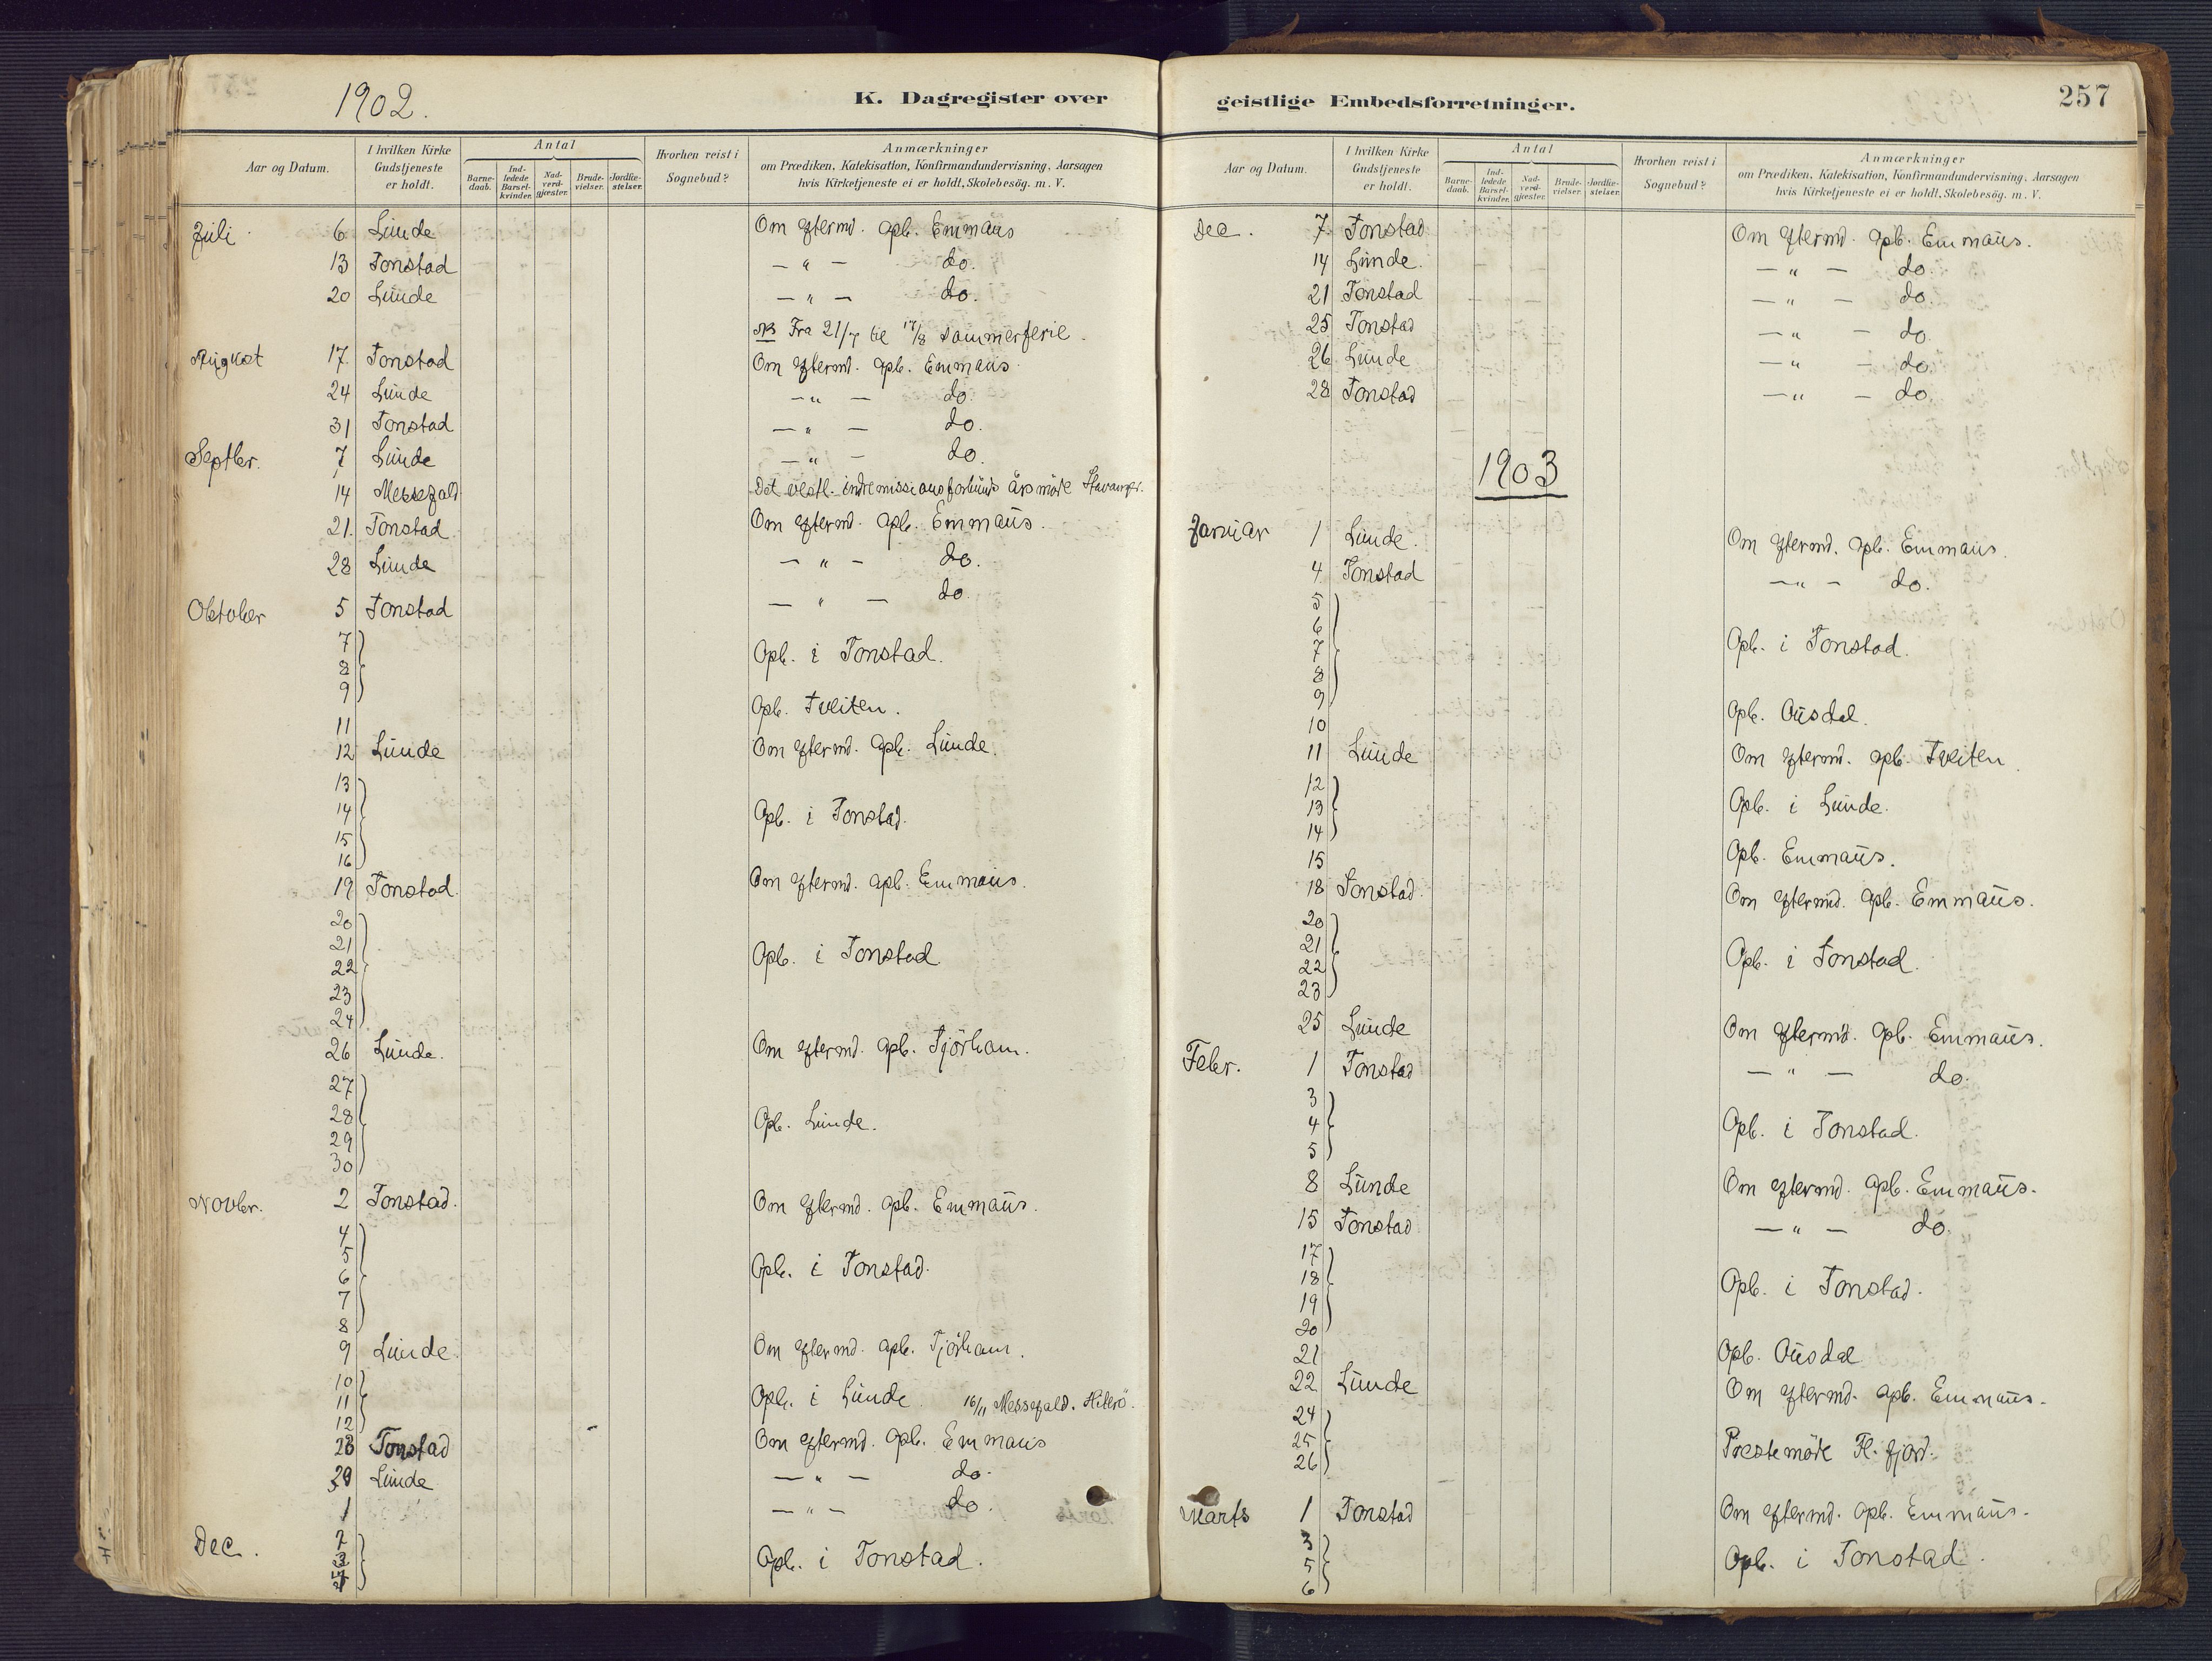 1902.
K. Dagregister over
Aar og Datum.
I hvilken Kirke Gudstjeneste er holdt.
Antal
Barne-daab.
Ind-ledede Barsel-kvinder.
Nad-verd-gjæster.
Brude-vielser.
Jordfæ-stelser.
Hvorhen reist i Sognebud?
Anmærkninger
om Prædiken, Katekisation, Konfirmandundervisning, Aarsagen
hvis Kirketjeneste ei er holdt, Skolebesög. m. V.
Juli 6 Lunde Om eftermd. opb. Emmaus
13 Tonstad — " — do.
20 Lunde — " — do.
NB Fra 21/7 til 17/8 Sommerferie.
August 17 Tonstad Om eftermd. opb. Emmaus
24 Lunde — " — do.
31 Tonstad — " — do.
Septbr. 7 Lunde — " — do.
14 Messefald Det vestl. indremissionsforbunds årsmöte Stavanger.
21. Tonstad Om eftermd. opb. Emmaus.
28 Lunde — " — do.
Oktober 5 Tonstad — " — do.
7
8 Opb. i Tonstad.
9
11 Opb. Tveiten.
12 Lunde Om eftermd. opb. Lunde.
13
14 Opb. i Tonstad.
15
16
19 Tonstad. Om eftermd. opb. Emmaus.
20
21
22 Opb. i Tonstad.
23
24
26 Lunde. Om eftermd. opb. Tjörham.
27
28 Opb. Lunde.
29
30
Novbr. 2 Tonstad. Om eftermd. opb. Emmaus.
4
5
6 Opb. i Tonstad.
7
8
9 Lunde. Om eftermd. opb. Tjörham.
10
11 Opb. i Lunde. 16/11 Messefald. Hiterö.
12
23 Tonstad Om eftermd. opb. Emmaus
Lunde — " — do.
1 — " — do.
Dec. 2
3 Opb. i Tonstad.
geistlige Embedsforretninger.
257
Aar og Datum.
I hvilken Kirke Gudstjeneste er holdt.
Antal
Barne-daab.
Ind-ledede Barsel-kvinder.
Nad-verd-gjæster.
Brude-vielser.
Jordfæ-stelser.
Hvorhen reist i Sognebud?
Anmærkninger
om Prædiken, Katekisation, Konfirmandundervisning, Aarsagen
hvis Kirketjeneste ei er holdt, Skolebesög. m. V.
Dec. 7 Tonstad Om eftermd. opb. Emmaus.
14 Lunde. — " — do.
21 Tonstad — " — do.
25 Tonstad — " — do.
26 Lunde — " — do.
28 Tonstad — " — do.
1903
Januar 1 Lunde. Om eftermd. opb. Emmaus.
4 Tonstad — " — do.
5
6
7 Opb. i Tonstad.
8
9
10 Opb. Ousdal.
11 Lunde Om eftermd. opb. Tveiten.
12
13 Opb. i Lunde.
14
15 Opb. Emmaus.
18 Tonstad. Om eftermd. opb. Emmaus.
20
21 Opb. i Tonstad.
22
23
25 Lunde Om eftermd. opb. Emmaus.
Febr. 1 Tonstad — " — do.
3
4 Opb. i Tonstad.
5
8 Lunde Om eftermd. opb. Emmaus.
15 Tonstad — " — do.
17
18 Opb. i Tonstad.
19
20
21 Opb. Ousdal
22 Lunde Om eftermd. opb. Emmaus.
24
25 Prestemöte Fl. fjord.
26
Marts 1 Tonstad Om eftermd. opb. Emmaus.
3
5 Opb. i Tonstad.
6